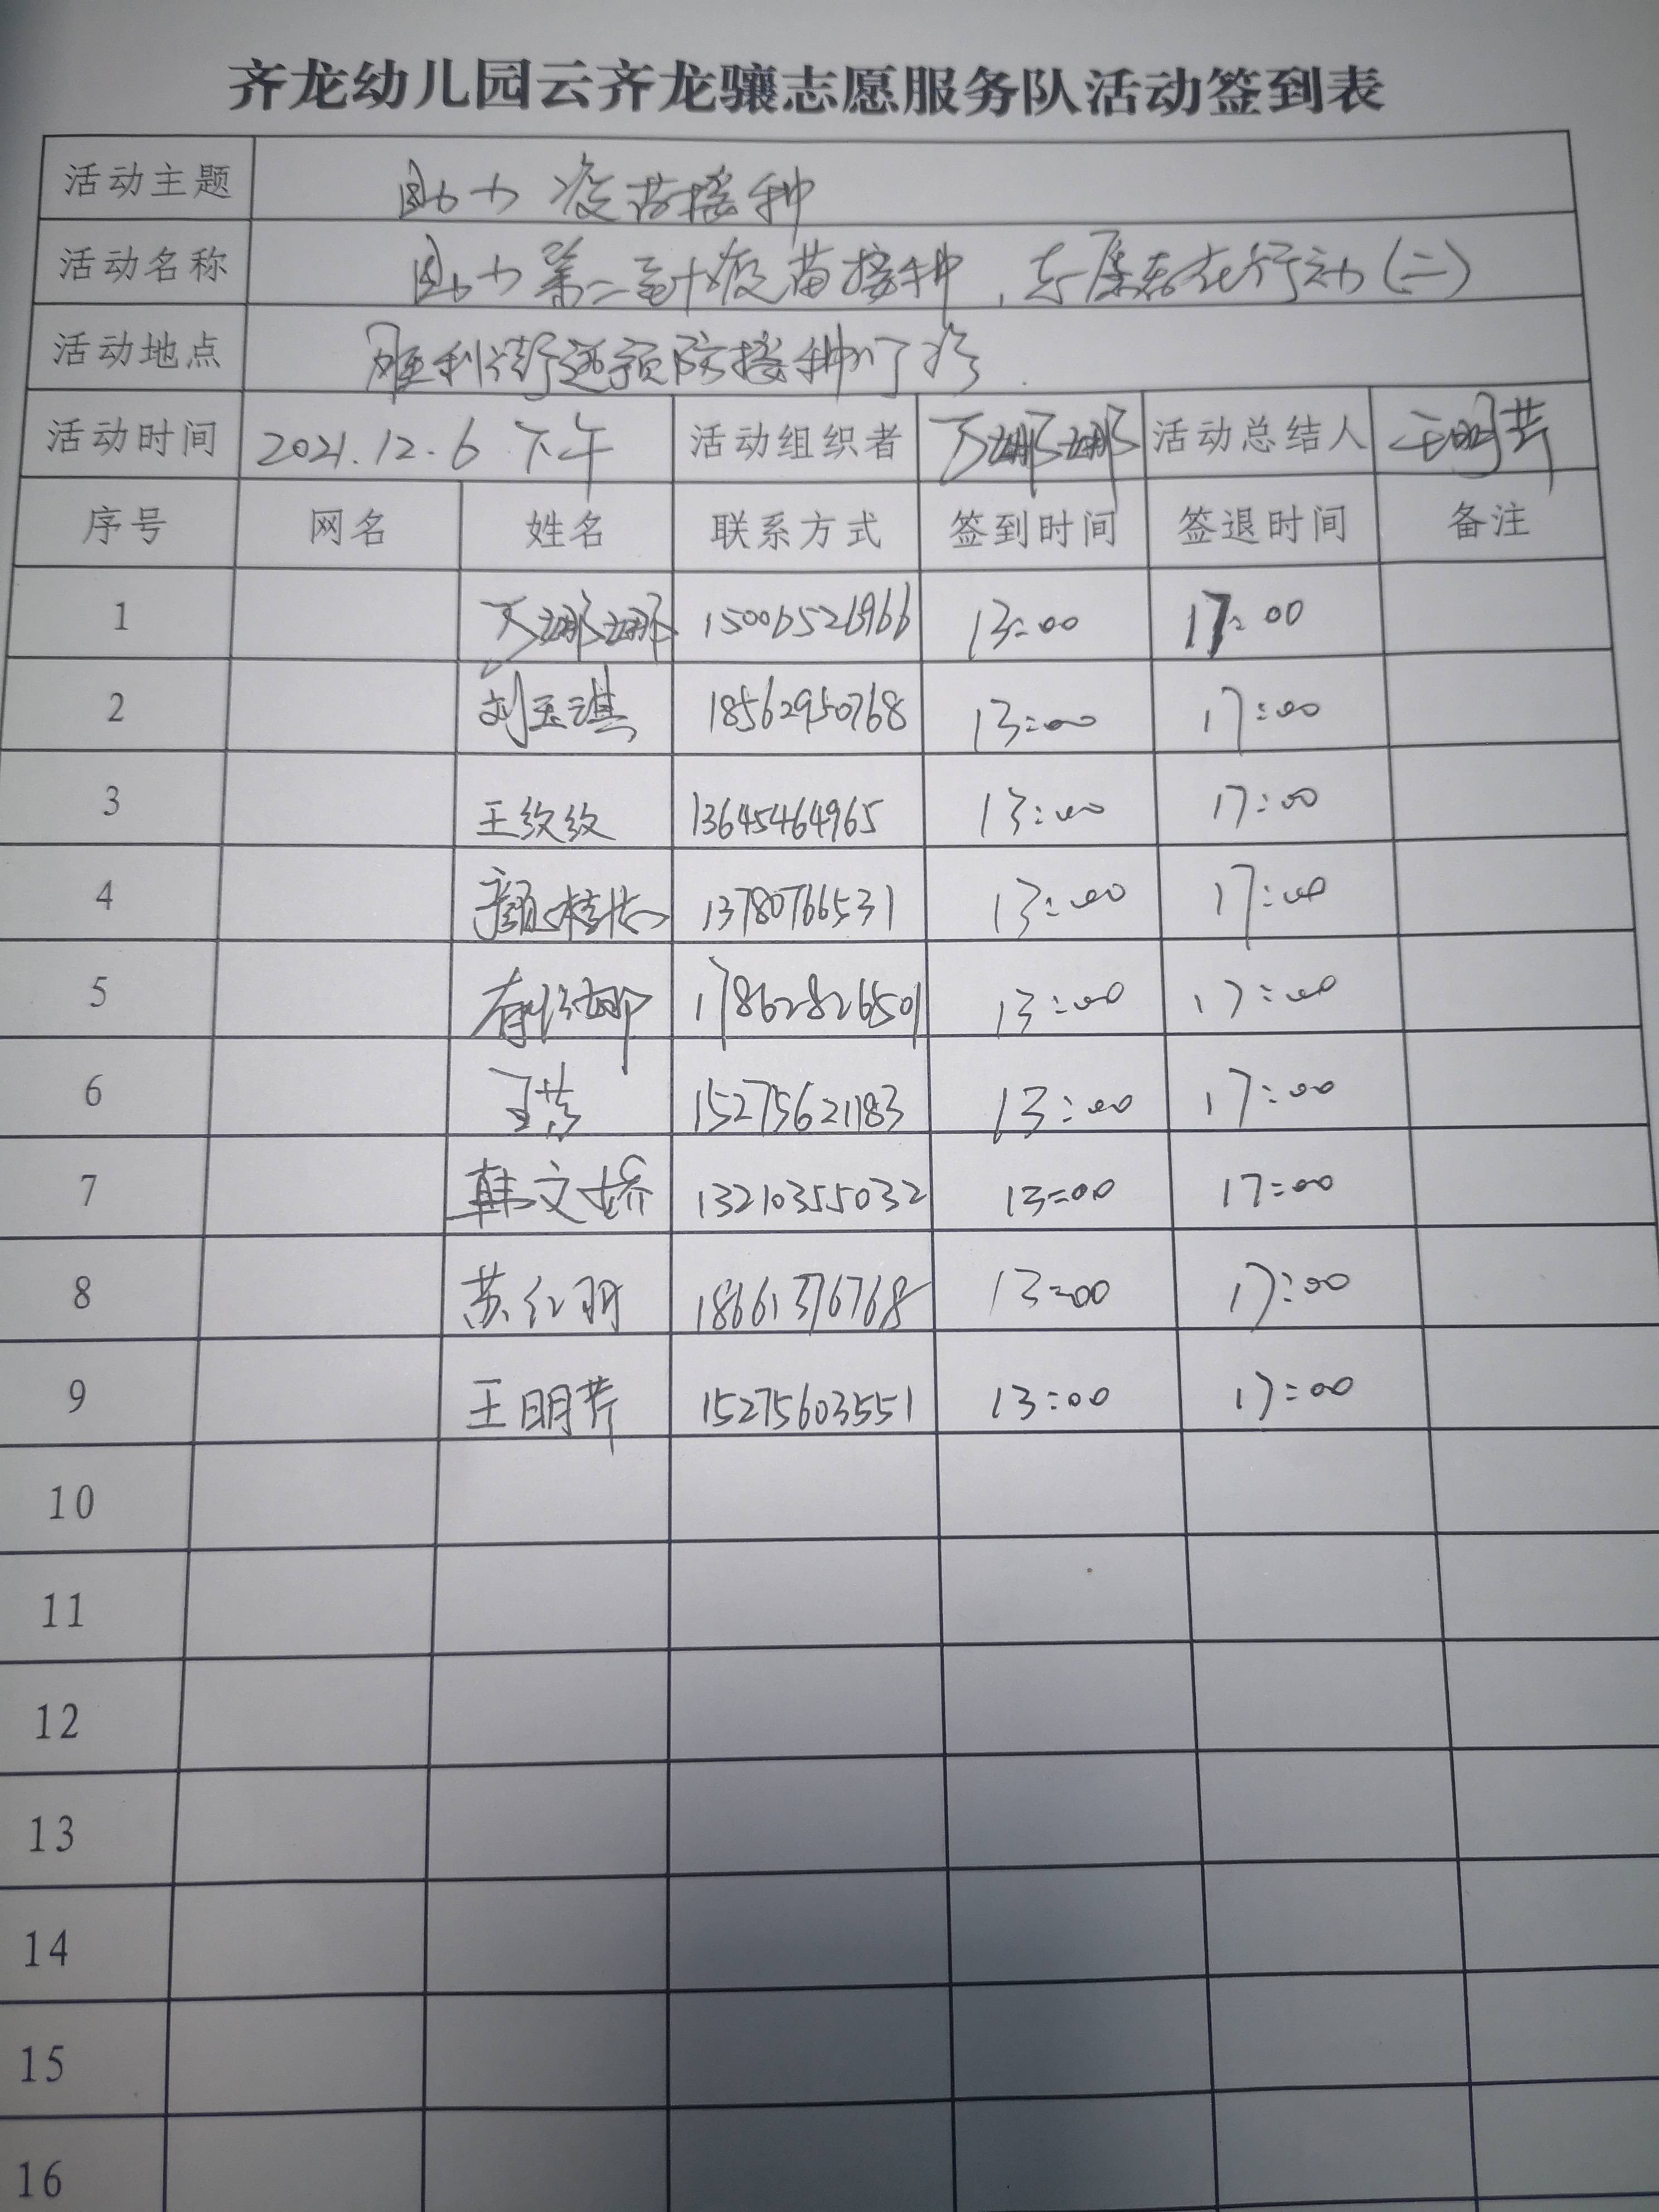 齐龙幼儿园云齐龙骧志愿服务队活动签到表
活动主题 助力疫苗接种
活动名称 助力第二针疫苗接种，志愿者在行动(二)
活动地点 胜利街道预防接种门诊
活动时间 2021.12.6 下午 活动组织者 万娜娜 活动总结人 王明芹
序号 网名 姓名 联系方式 签到时间 签退时间 备注
1 万娜娜 15006526966 13:00 17:00
2 刘玉琪 18562950768 13:00 17:00
3 王纹纹 13645464965 13:00 17:00
4 颜 13780766531 13:00 17:00
5 17862826501 13:00 17:00
6 王 15275621183 13:00 17:00
7 韩文娇 13210355032 13:00 17:00
8 苏红羽 18661376768 13:00 17:00
9 王明芹 15275603551 13:00 17:00
10
11
12
13
14
15
16